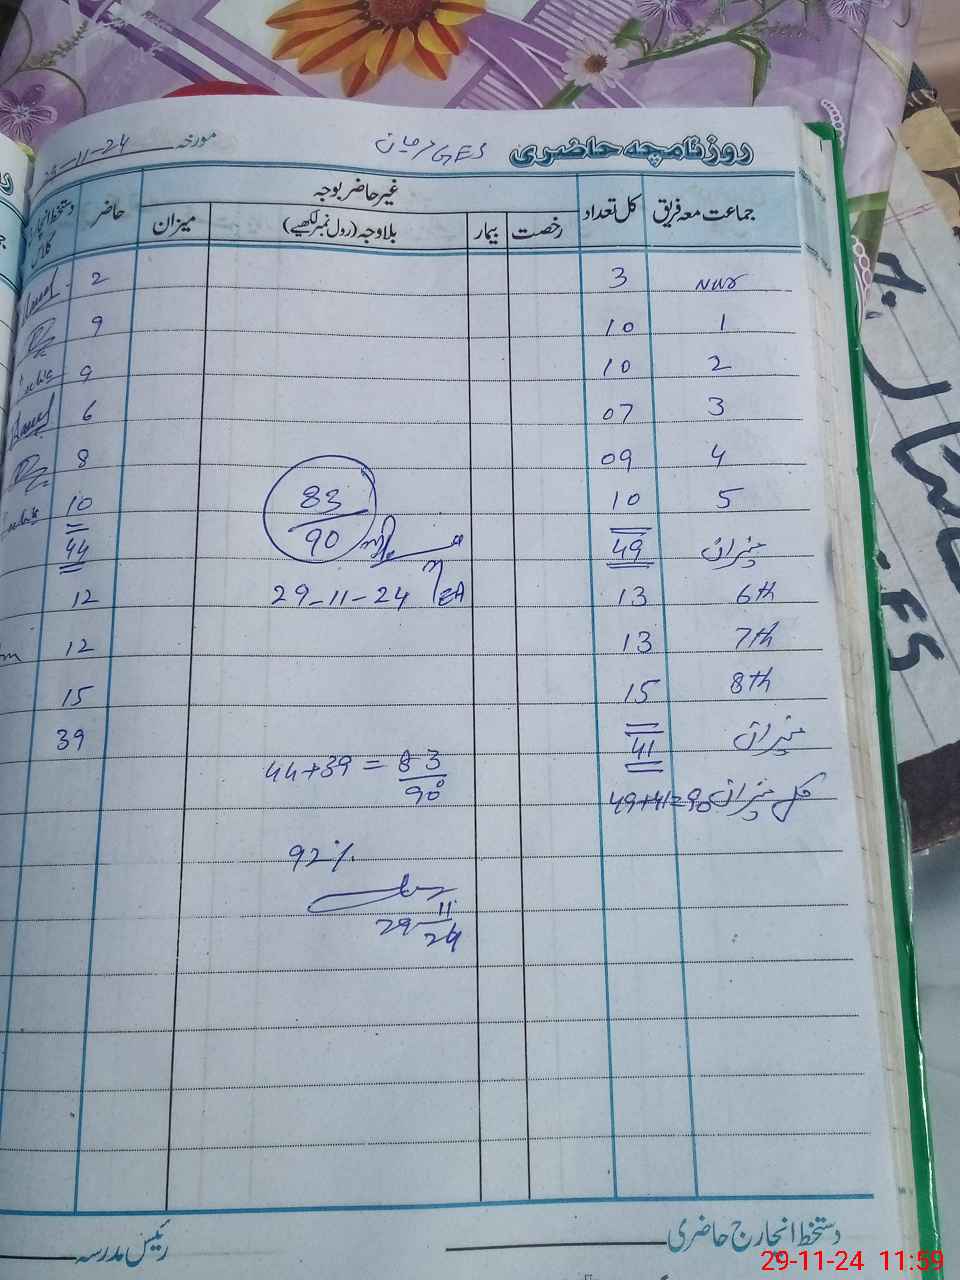 روزنامچہ حاضری GES مورخہ 29-11-24
جماعت معہ فریق کل تعداد غیر حاضر بوجہ حاضر دستخط انچارج کلاس
رخصت بیمار بلاوجہ (رول نمبر لکھیے) میزان
Nur 3 2
1 10 9
2 10 9
3 07 6
4 09 8
5 10 10
83/90
میزان 49 44
29-11-24
6th 13 12
7th 13 12
8th 15 15
میزان 41 39
44+39 = 83/90
کل میزان 49+41=90
92%
29-11-24
دستخط انچارج حاضری رئیس مدرسہ
29-11-24 11:59